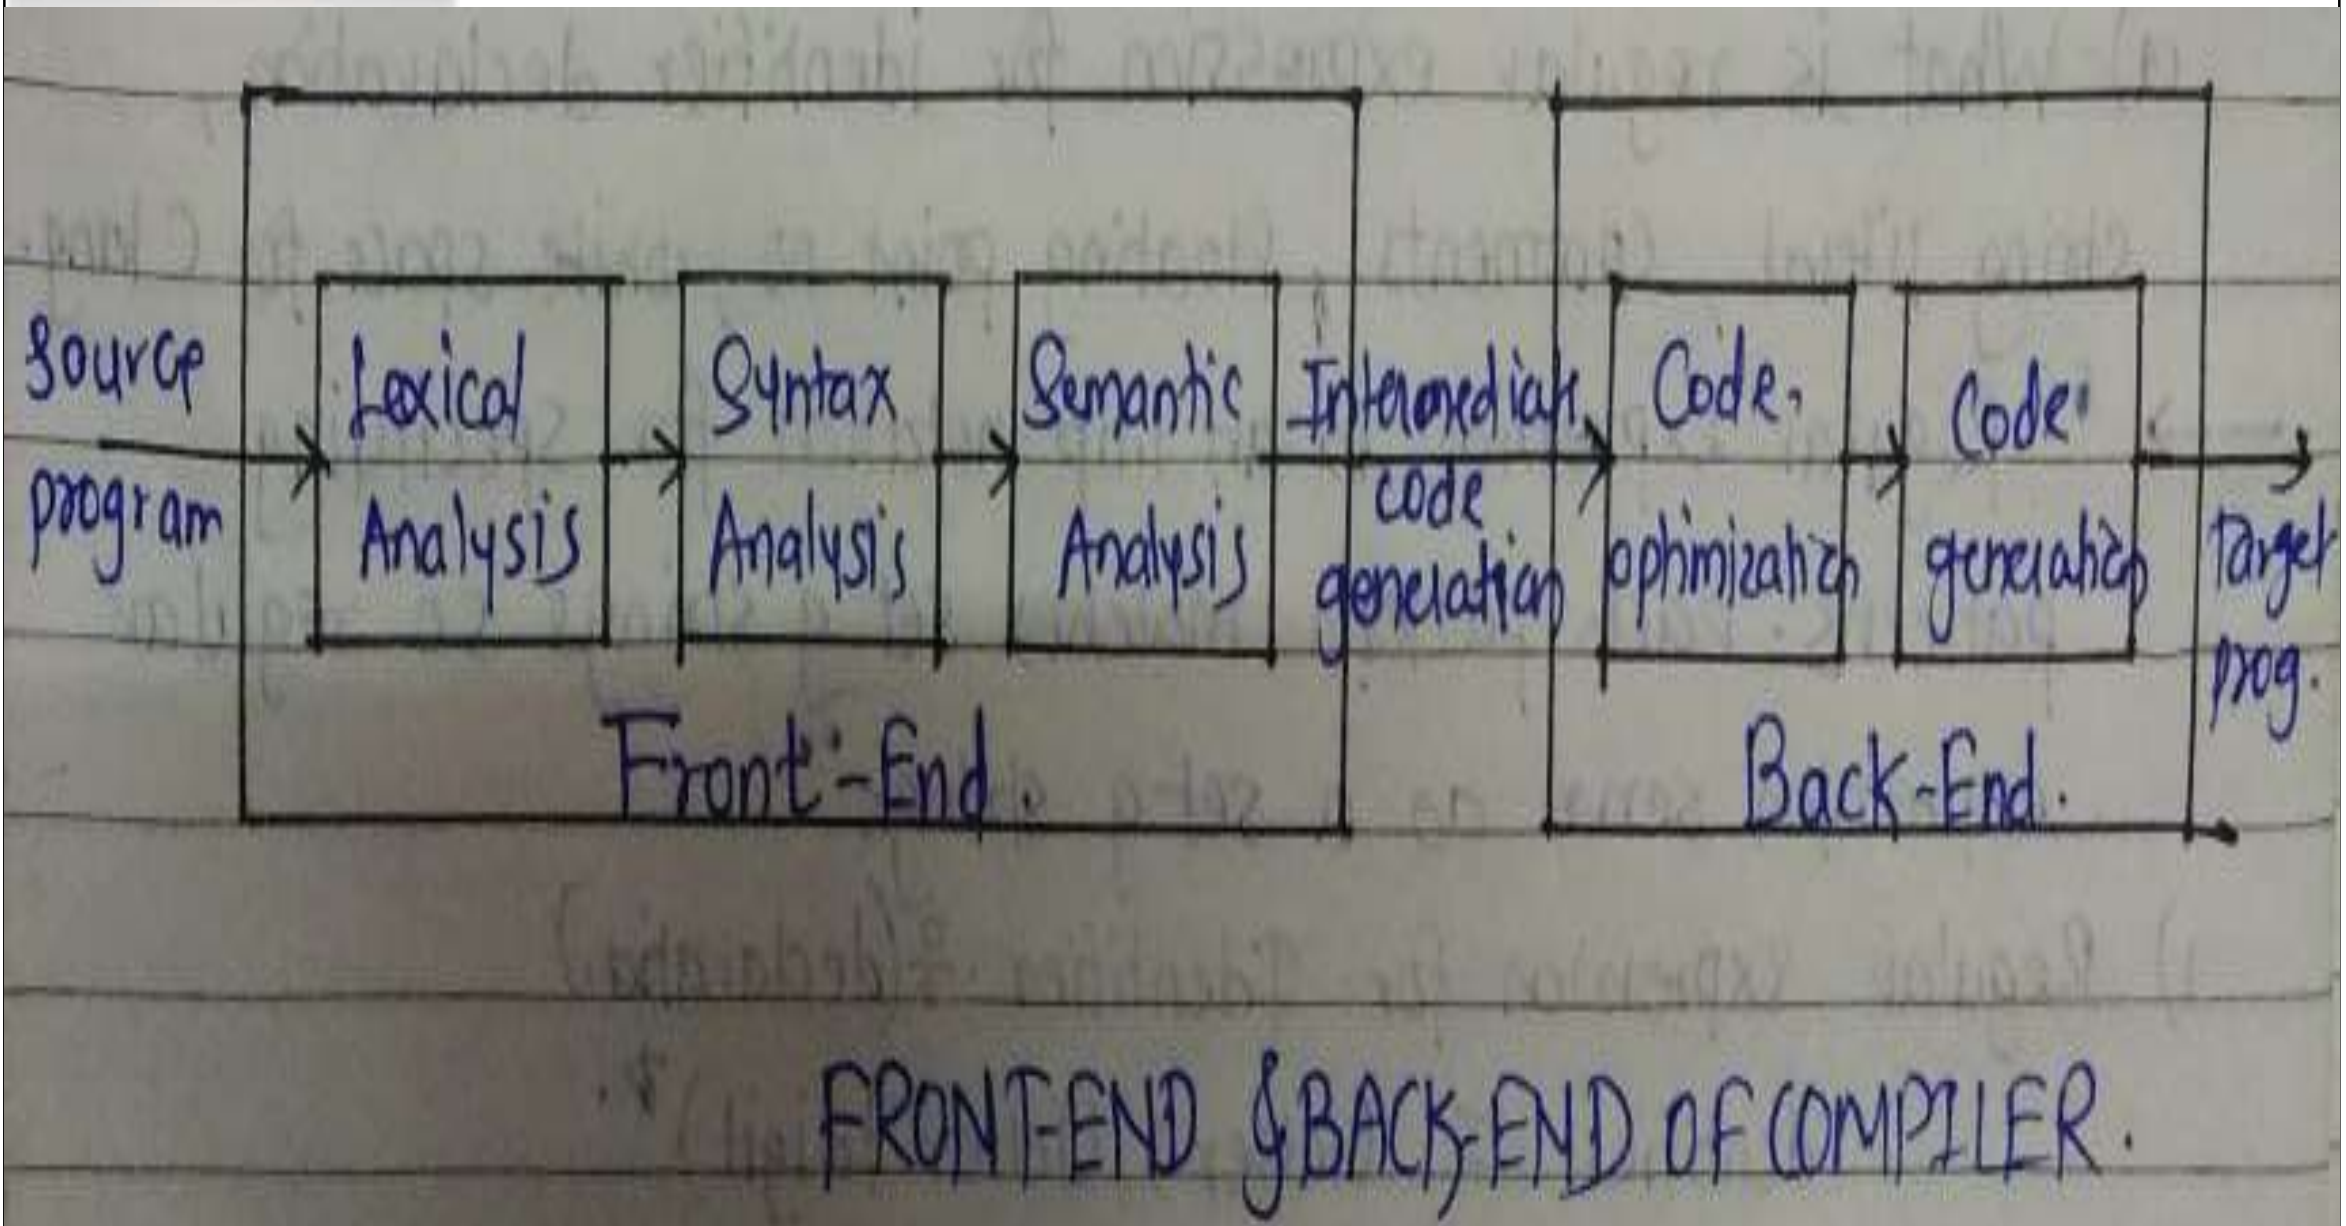 Source
program
Lexical
Analysis
Syntax
Analysis
Semantic
Analysis
Intermediate
code
generation
Code
optimization
Code
generation
Target
prog.
Front-End.
Back-End.
FRONT-END & BACK-END OF COMPILER.